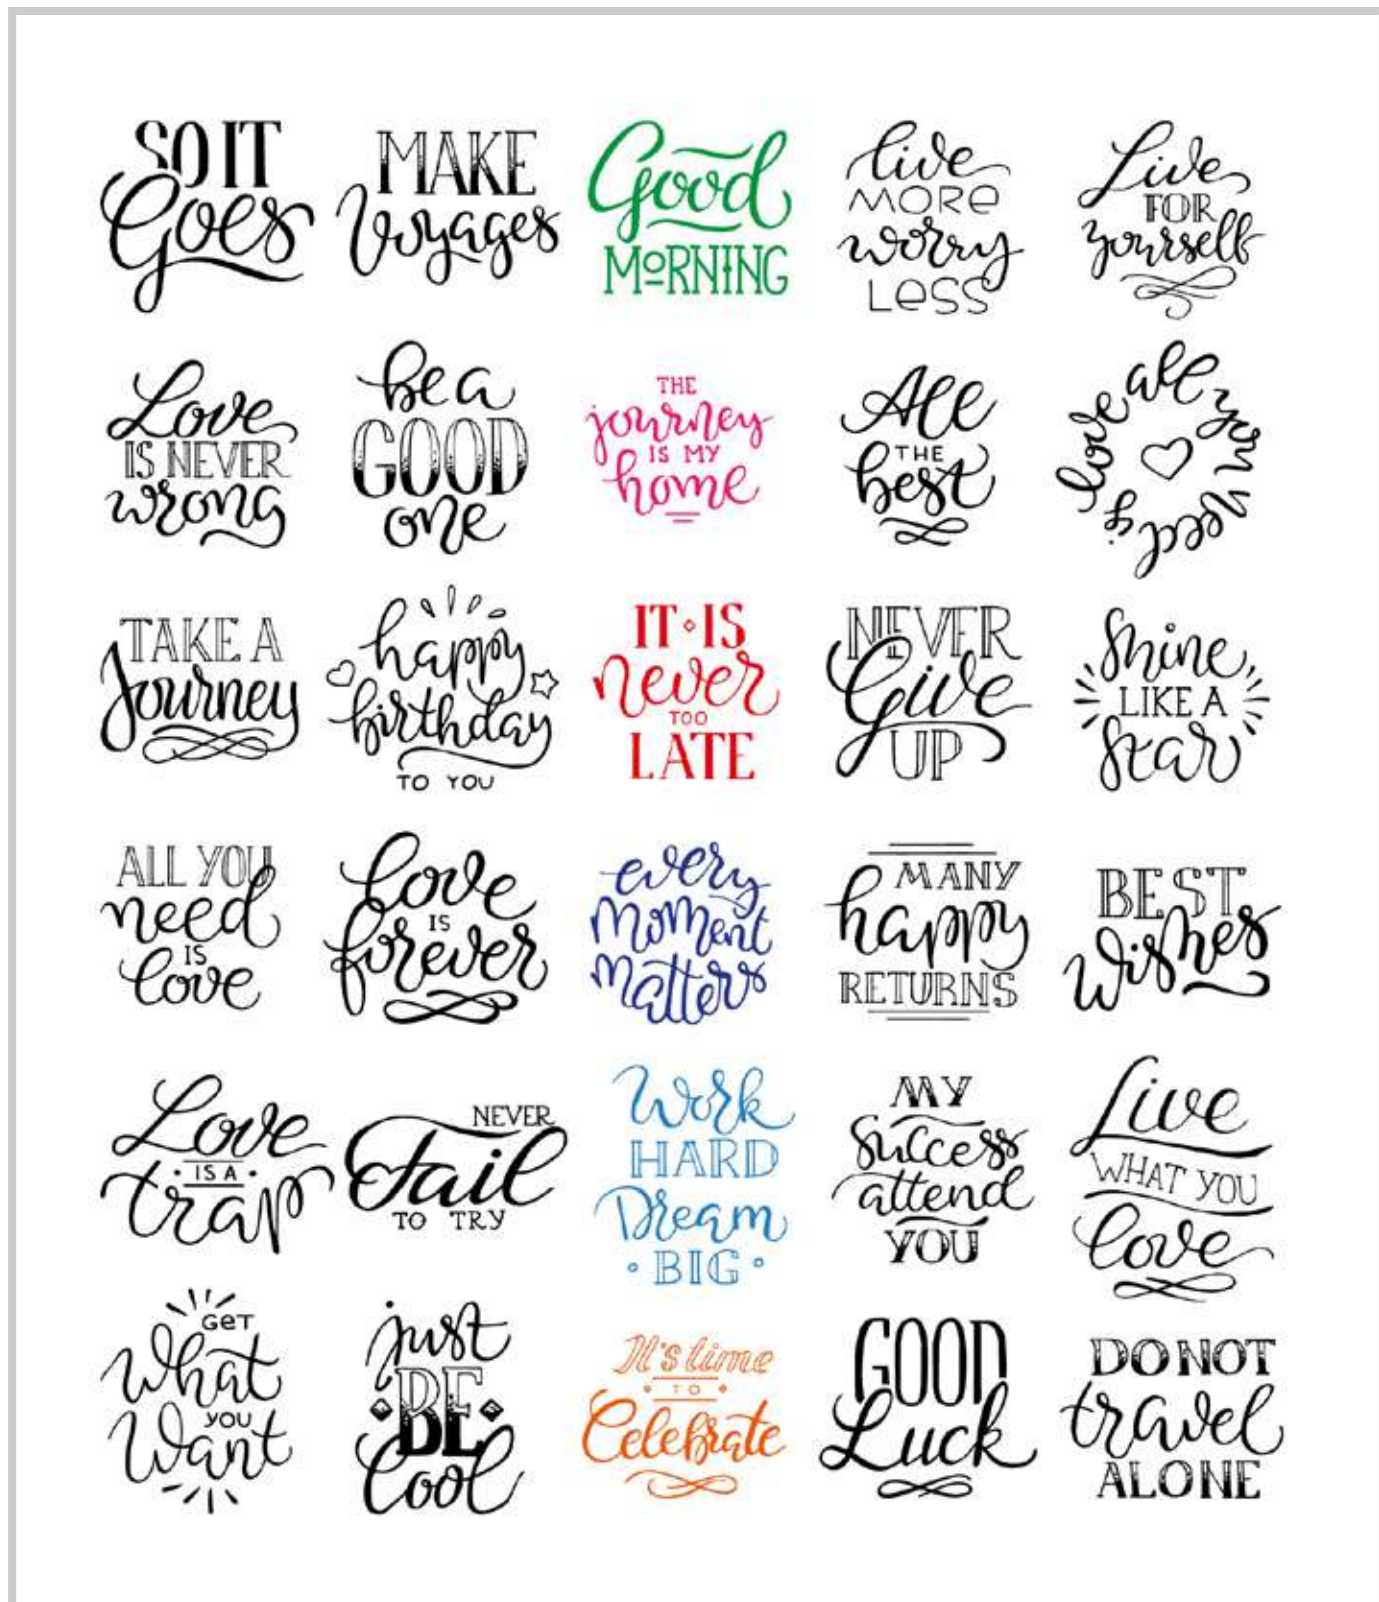 SO IT
Goes
MAKE
Voyages
Good
MORNING
live
MORE
worry
LESS
Live
FOR
yourself
Love
IS NEVER
wrong
be a
GOOD
one
THE
journey
IS MY
home
All
THE
best
all you need is love
TAKE A
Journey
happy
birthday
TO YOU
IT IS
never
TOO
LATE
NEVER
Give
UP
Shine
LIKE A
Star
ALL YOU
need
IS
love
love
IS
forever
every
Moment
Matters
MANY
happy
RETURNS
BEST
Wishes
Love
IS A
trap
NEVER
Fail
TO TRY
Work
HARD
Dream
BIG
MY
success
attend
YOU
Live
WHAT YOU
love
GET
What
YOU
Want
just
BE
Cool
It's time
TO
Celebrate
GOOD
Luck
DO NOT
travel
ALONE